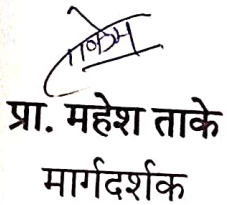 प्रा. महेश ताके
मार्गदर्शक